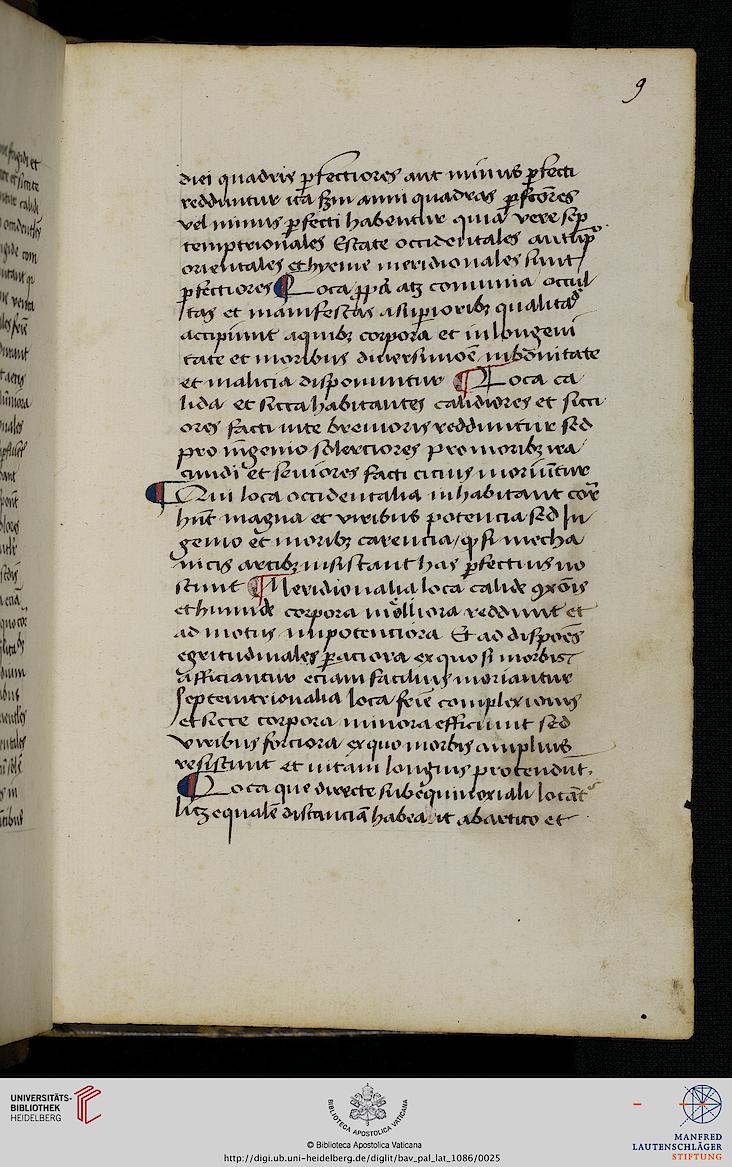 9
diei quadris ꝑfectiores aut minus ꝑfecti
redduntur ita scðm anni quadras ꝑfcōres
vel minus ꝑfecti habentur quia vere sep
temptrionales Estate occidentales autūpͦ
orientales et hyeme meridionales sunt
ꝑfectiores Loca ꝓpͥa atꝫ comunia occul
tas et manifestas asuꝑioribꝫ qualitaꝭ
accipiunt aquibꝫ corpora et inlongeui
tate et moribus diuersimoē inbōnitate
et malicia disponuntur Loca ca
lida et sicca habitantes calidiores et sicci
ores facti uite breuioris redduntur sed
pro ingenio solerciores pro moribꝫ ira
cundi et seniores facti cicius moriūtur
Qui loca occidentalia inhabitant corꝑ
hn̄t magna et viribus potencia sed In
genio et moribꝫ carencia ꝙ si mecha
nicis artibꝫ insistant has ꝑfectius no
scunt Meridionalia loca calide ꝯxōis
et humide corpora molliora reddunt et
ad motus impotenciora Et ad dispōes
egritudinales ꝑaciora ex quo si morbis
afficiantur eciam facilius moriantur
Septemtrionalia loca frīe complexionis
et sicce corpora minora efficiunt sed
viribus forciora ex quo morbis amplius
resistunt et uitam longius protendūt.
Loca que directe sub equinoxiali locātͬ
licꝫ equalē distanciā habeant ab artico et
UNIVERSITÄTS-
BIBLIOTHEK
HEIDELBERG
BIBLIOTECA APOSTOLICA VATICANA
© Biblioteca Apostolica Vaticana
http://digi.ub.uni-heidelberg.de/diglit/bav_pal_lat_1086/0025
MANFRED
LAUTENSCHLÄGER
STIFTUNG